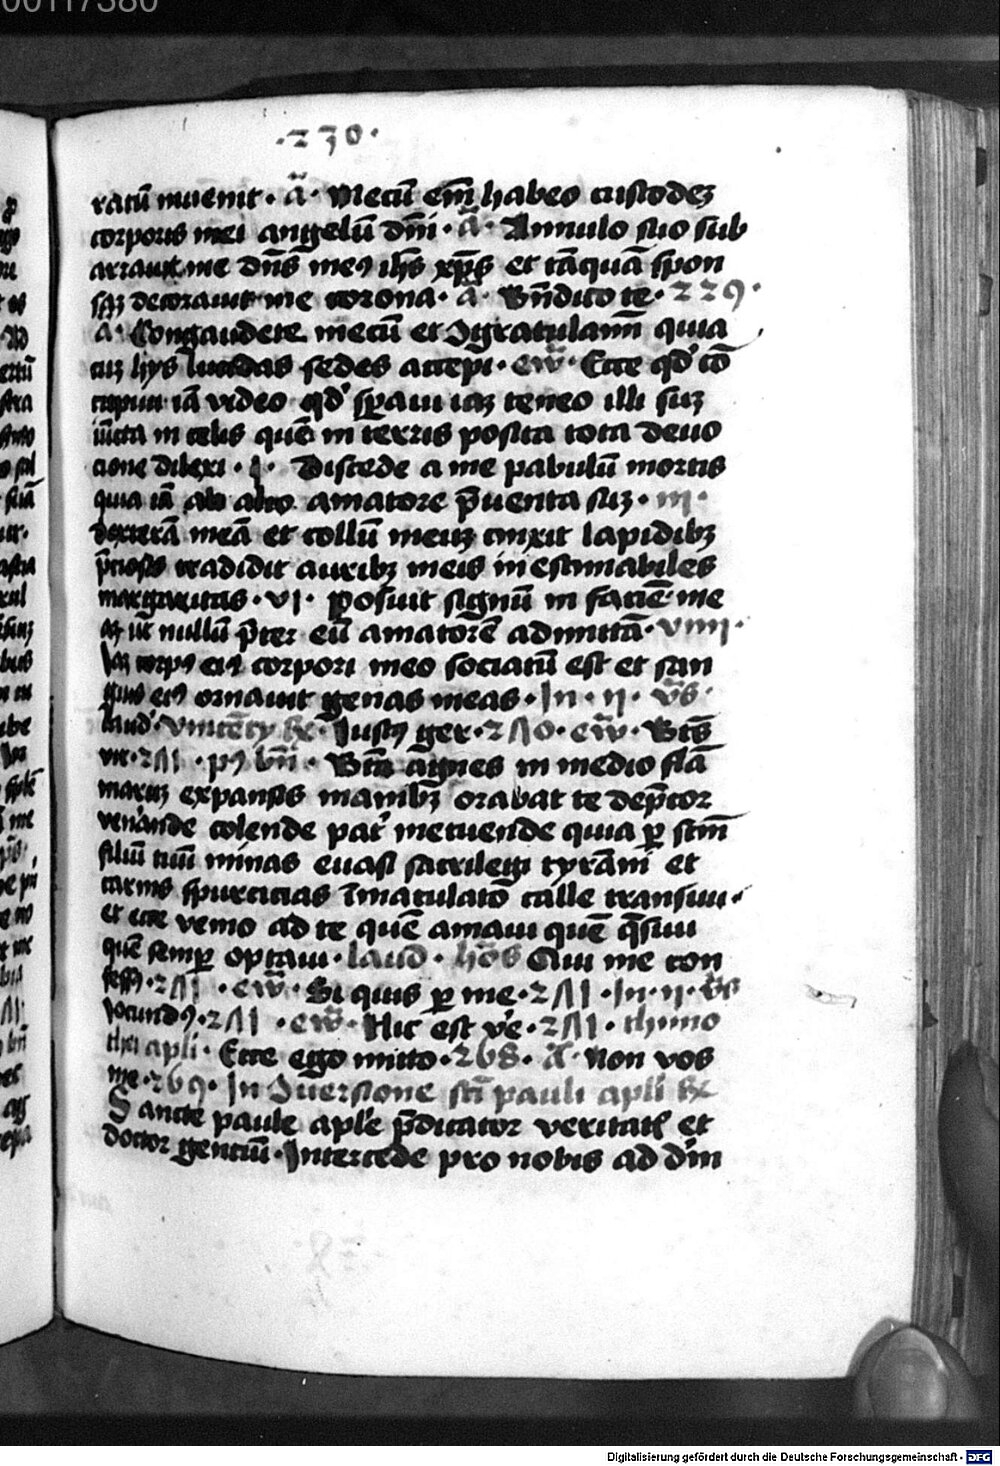 00117380
·230·
ratū inuenit · ā · Mecū em̄ habeo custodez
corporis mei angelū dn̄i · ā · Annulo suo sub
arrauit me dn̄s meꝯ ihs̄ xp̄s et tāquā spon
saz decorauit me corona · ā · Bn̄dico te · 229 ·
ā · Congaudete mecū et ꝯgratulamī quia
cuz hys lucidas sedes accepi · ew̄ · Ecce qd' cō
cupiui iā video qd' sꝑaui iaz teneo illi suz
iūcta in celis quē in terris posita tota deuo
cione dilexi · Discede a me pabulū mortis
quia iā ab alio amatore p̄uenta suz · iii ·
dexterā meā et collū meuz cinxit lapidibz
p̄ciosis tradidit auribz meis inestimabiles
margaritas · vi · posuit signū in faciē me
az ut nullū p̄ter eū amatorē admittā · viiii ·
Iaz corpꝯ eiꝯ corpori meo sociatū est et san
guis eiꝯ ornauit genas meas · In · ii · v̄s ·
laud' · vincēty &c · Iustꝯ ger · 2Λ0 · ew̄ · Bt̄s
vir · 2Λ1 · pꝯ bn̄ · Bt̄a āgnes in medio flā
maruz expansis manibz orabat te dep̄cor
ven'ande colende pat' metuende quia ꝑ sc̄m
filiū tuū minas euasi sacrilegi tyrāni et
carnis spurcicias īmaculato calle transiui ·
et ecce venio ad te quē amaui quē q̄siui
quē semꝑ optaui · laud · hōs Qui me con
fess' · 2Λ1 · ew̄ · Si quis ꝑ me · 2Λ1 · In · ii · v̄s
Iocundꝯ · 2Λ1 · ew̄ · Hic est ve · 2Λ1 · thimo
thei apli · Ecce ego mitto · 268 · ā · Non vos
me · 269 · In ꝯuersione sc̄i pauli apli &c
Sancte paule aple p̄dicator veritatꝭ et
doctor gentiū · Intercede pro nobis ad d'm
Digitalisierung gefördert durch die Deutsche Forschungsgemeinschaft · DFG